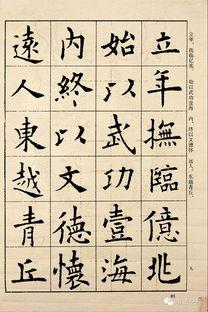 立年，抚临亿兆。 始以武功壹海 内，终以文德怀 远人。东越青丘，
立年撫臨億兆
始以武功壹海
內終以文德懷
遠人東越青丘